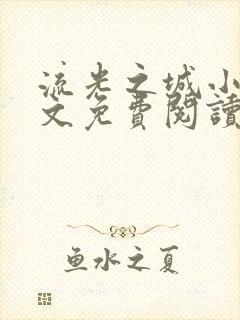 流光之城小
文免費閱讀
鱼水之夏